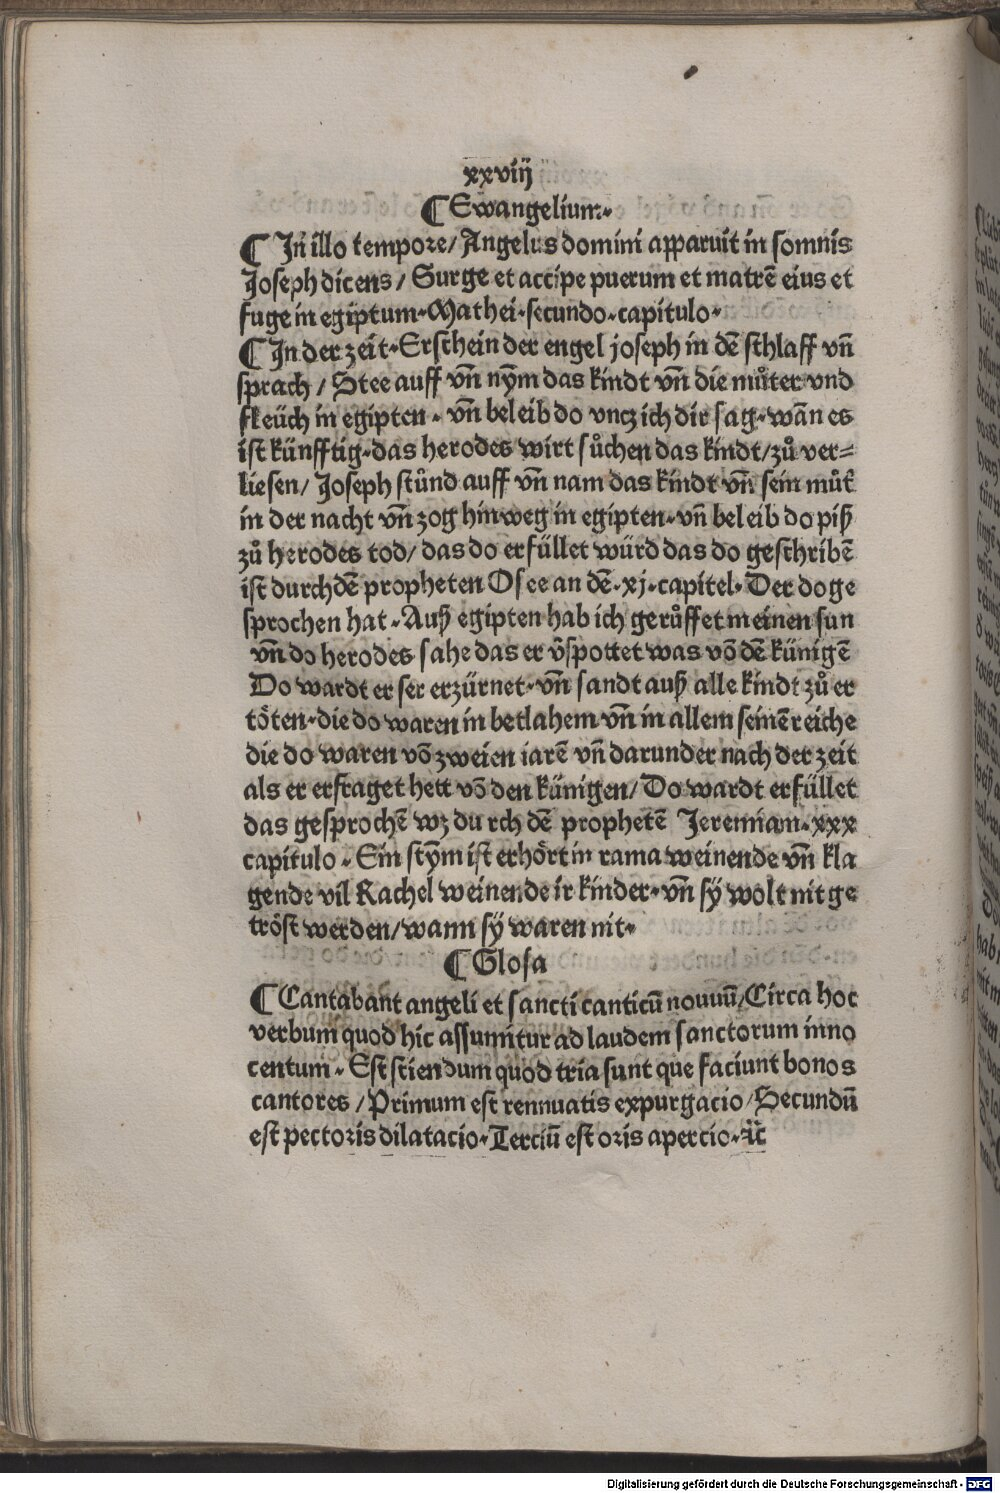 xxviij
¶ Ewangelium·
¶ In illo tempore/ Angelus domini apparuit in somnis
Joseph dicens/ Surge et accipe puerum et matrē eius et
fuge in egiptum·Mathei·secundo·capitulo·
¶ In der zeit·Erschein der engel joseph in dē schlaff vn̄
sprach/ Stee auff vn̄ nym̄ das kindt vn̄ die můter vnd
fleüch in egipten· vn̄ beleib do vncz ich dir sag·wān es
ist künfftig·das herodes wirt sůchen das kindt/zů ver=
liesen/ Joseph stůnd auff vn̄ nam das kindt vn̄ sein můt̄
in der nacht vn̄ zog hinweg in egipten·vn̄ beleib do piß
zů herodes tod/ das do erfüllet würd das do geschribē
ist durch dē propheten Osee an dē·xj·capitel·Der do ge
sprochen hat·Auß egipten hab ich gerůffet meinen sun
vn̄ do herodes sahe das er v̄spottet was vō dē künigē
Do wardt er ser erzürnet·vn̄ sandt auß alle kindt zů er
töten·die do waren in betlahem vn̄ in allem seinē reiche
die do waren vō zweien iarē vn̄ darunder nach der zeit
als er erfraget hett vō den künigen/ Do wardt erfüllet
das gesprochē wz du rch dē prophetē Jeremiam·xxx
capitulo· Ein stym̄ ist erhört in rama weinende vn̄ kla
gende vil Rachel weinende ir kinder·vn̄ sÿ wolt nit ge
tröst werden/wann sÿ waren nit·
¶ Glosa
¶ Cantabant angeli et sancti canticū nouuū/Circa hoc
verbum quod hic assumitur ad laudem sanctorum inno
centum· Est sciendum quod tria sunt que faciunt bonos
cantores/ Primum est rennuatis expurgacio/Secundū
est pectoris dilatacio·Terciū est oris apercio·ꝛc̄
Digitalisierung gefördert durch die Deutsche Forschungsgemeinschaft - DFG